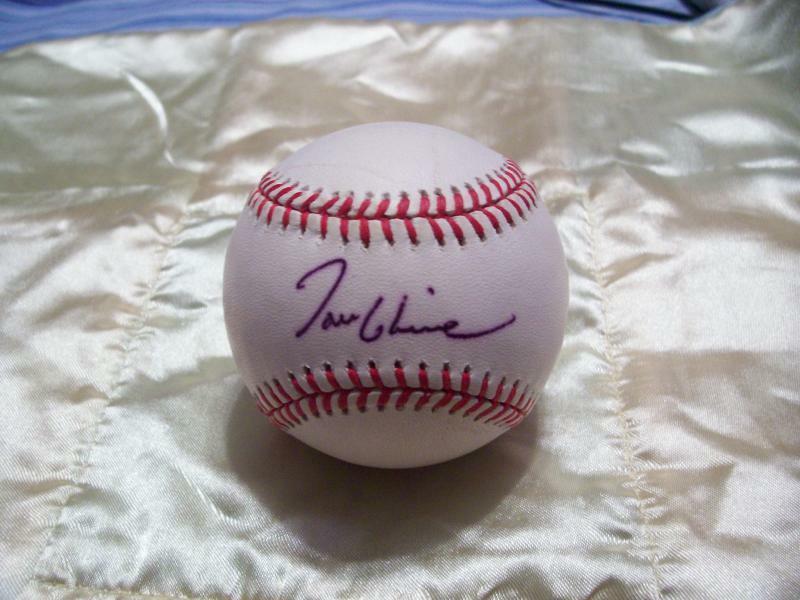 Tom Glavine